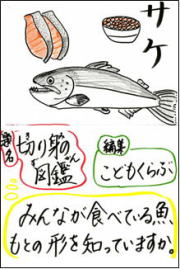 サケ
書名
切り身の図鑑
編集
こどもくらぶ
みんなが食べている魚、
もとの形を知っていますか。